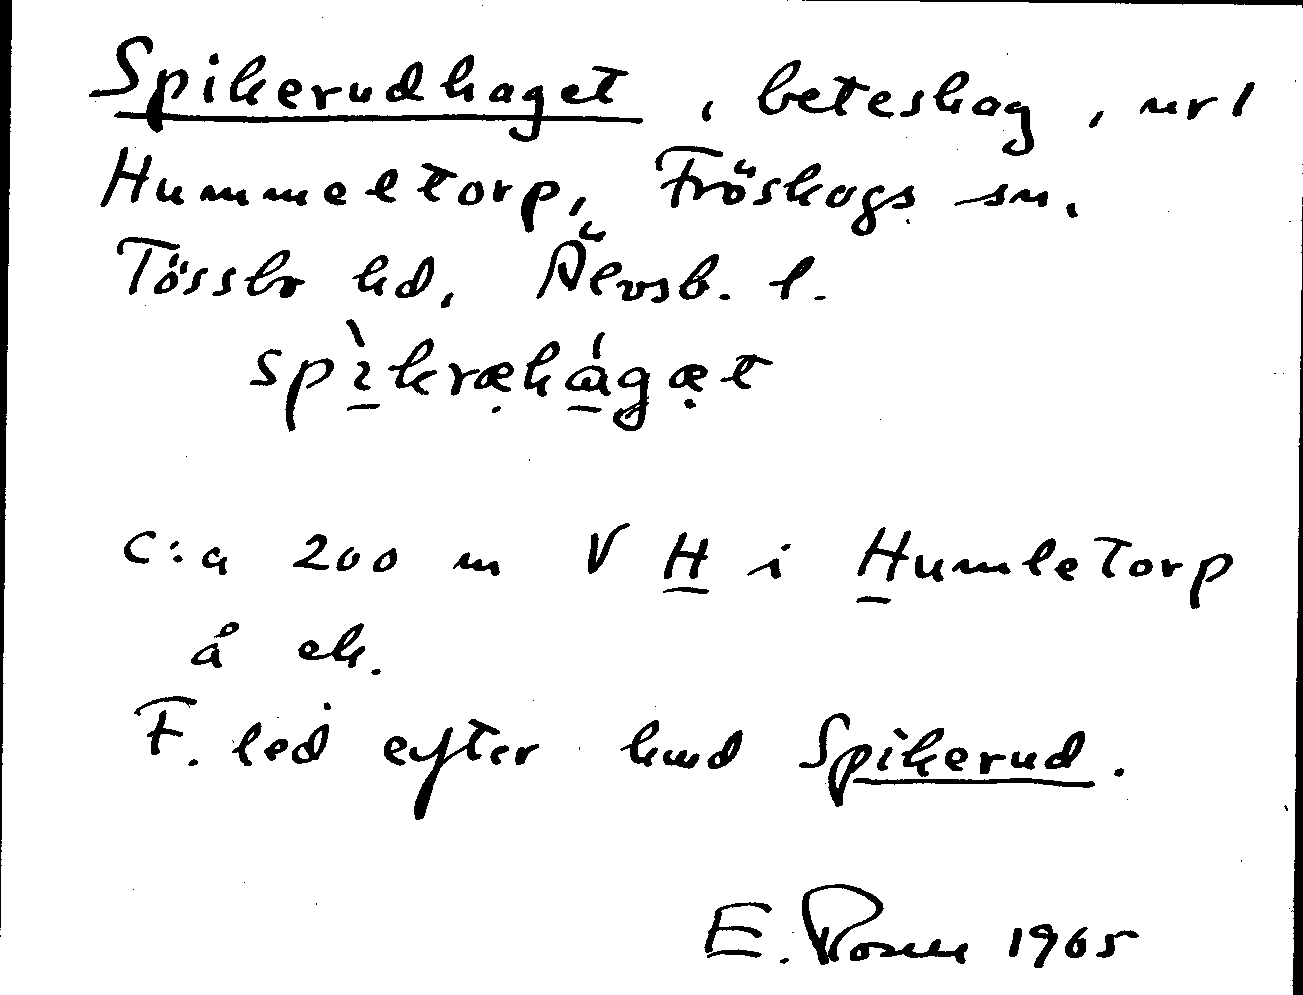 Spikerudhaget, beteshag, nr 1
Hummeltorp, Fröskogs sn.
Tössbo hd, Älvsb. l.
spìkræhágæt
c:a 200 m V H i Humletorp
å ek.
F. led efter hmd Spikerud.
E. Rosen 1965